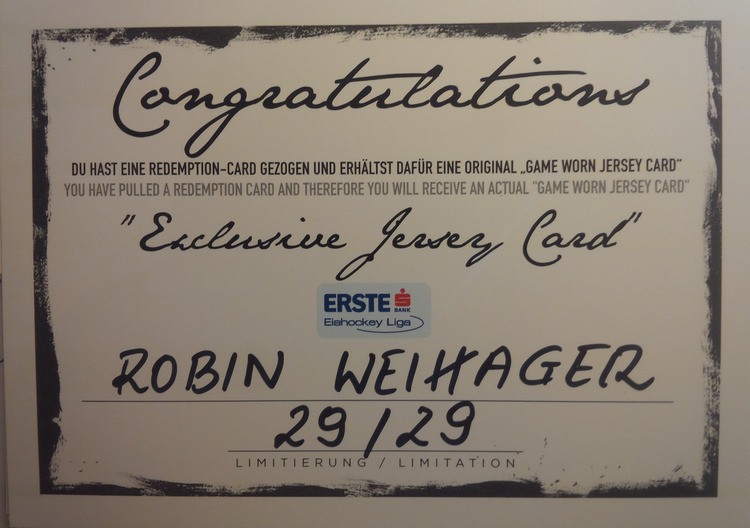 Congratulations
DU HAST EINE REDEMPTION-CARD GEZOGEN UND ERHÄLTST DAFÜR EINE ORIGINAL „GAME WORN JERSEY CARD“
YOU HAVE PULLED A REDEMPTION CARD AND THEREFORE YOU WILL RECEIVE AN ACTUAL "GAME WORN JERSEY CARD"
"Exclusive Jersey Card"
ERSTE BANK
Eishockey Liga
ROBIN WEIHAGER
29/29
LIMITIERUNG / LIMITATION